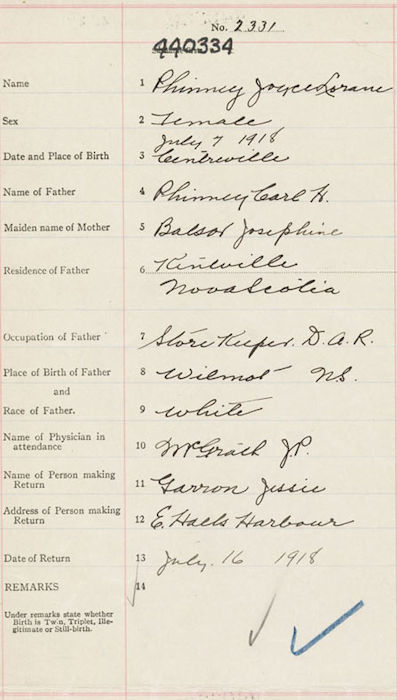 No. 2331
440334
Name 1 Phinney Joyce Lorane
Sex 2 Female
July 7 1918
Date and Place of Birth 3 Centreville
Name of Father 4 Phinney Carl H.
Maiden name of Mother 5 Balsor Josephine
Residence of Father 6 Kentville
Nova Scotia
Occupation of Father 7 Store Keeper. D. A. R.
Place of Birth of Father 8 Wilmot NS.
and
Race of Father. 9 White
Name of Physician in
attendance 10 McGrath J.P.
Name of Person making
Return 11 Garron Jessie
Address of Person making
Return 12 E. Halls Harbour
Date of Return 13 July. 16 1918
REMARKS 14
Under remarks state whether
Birth is Twin, Triplet, Ille-
gitimate or Still-birth.